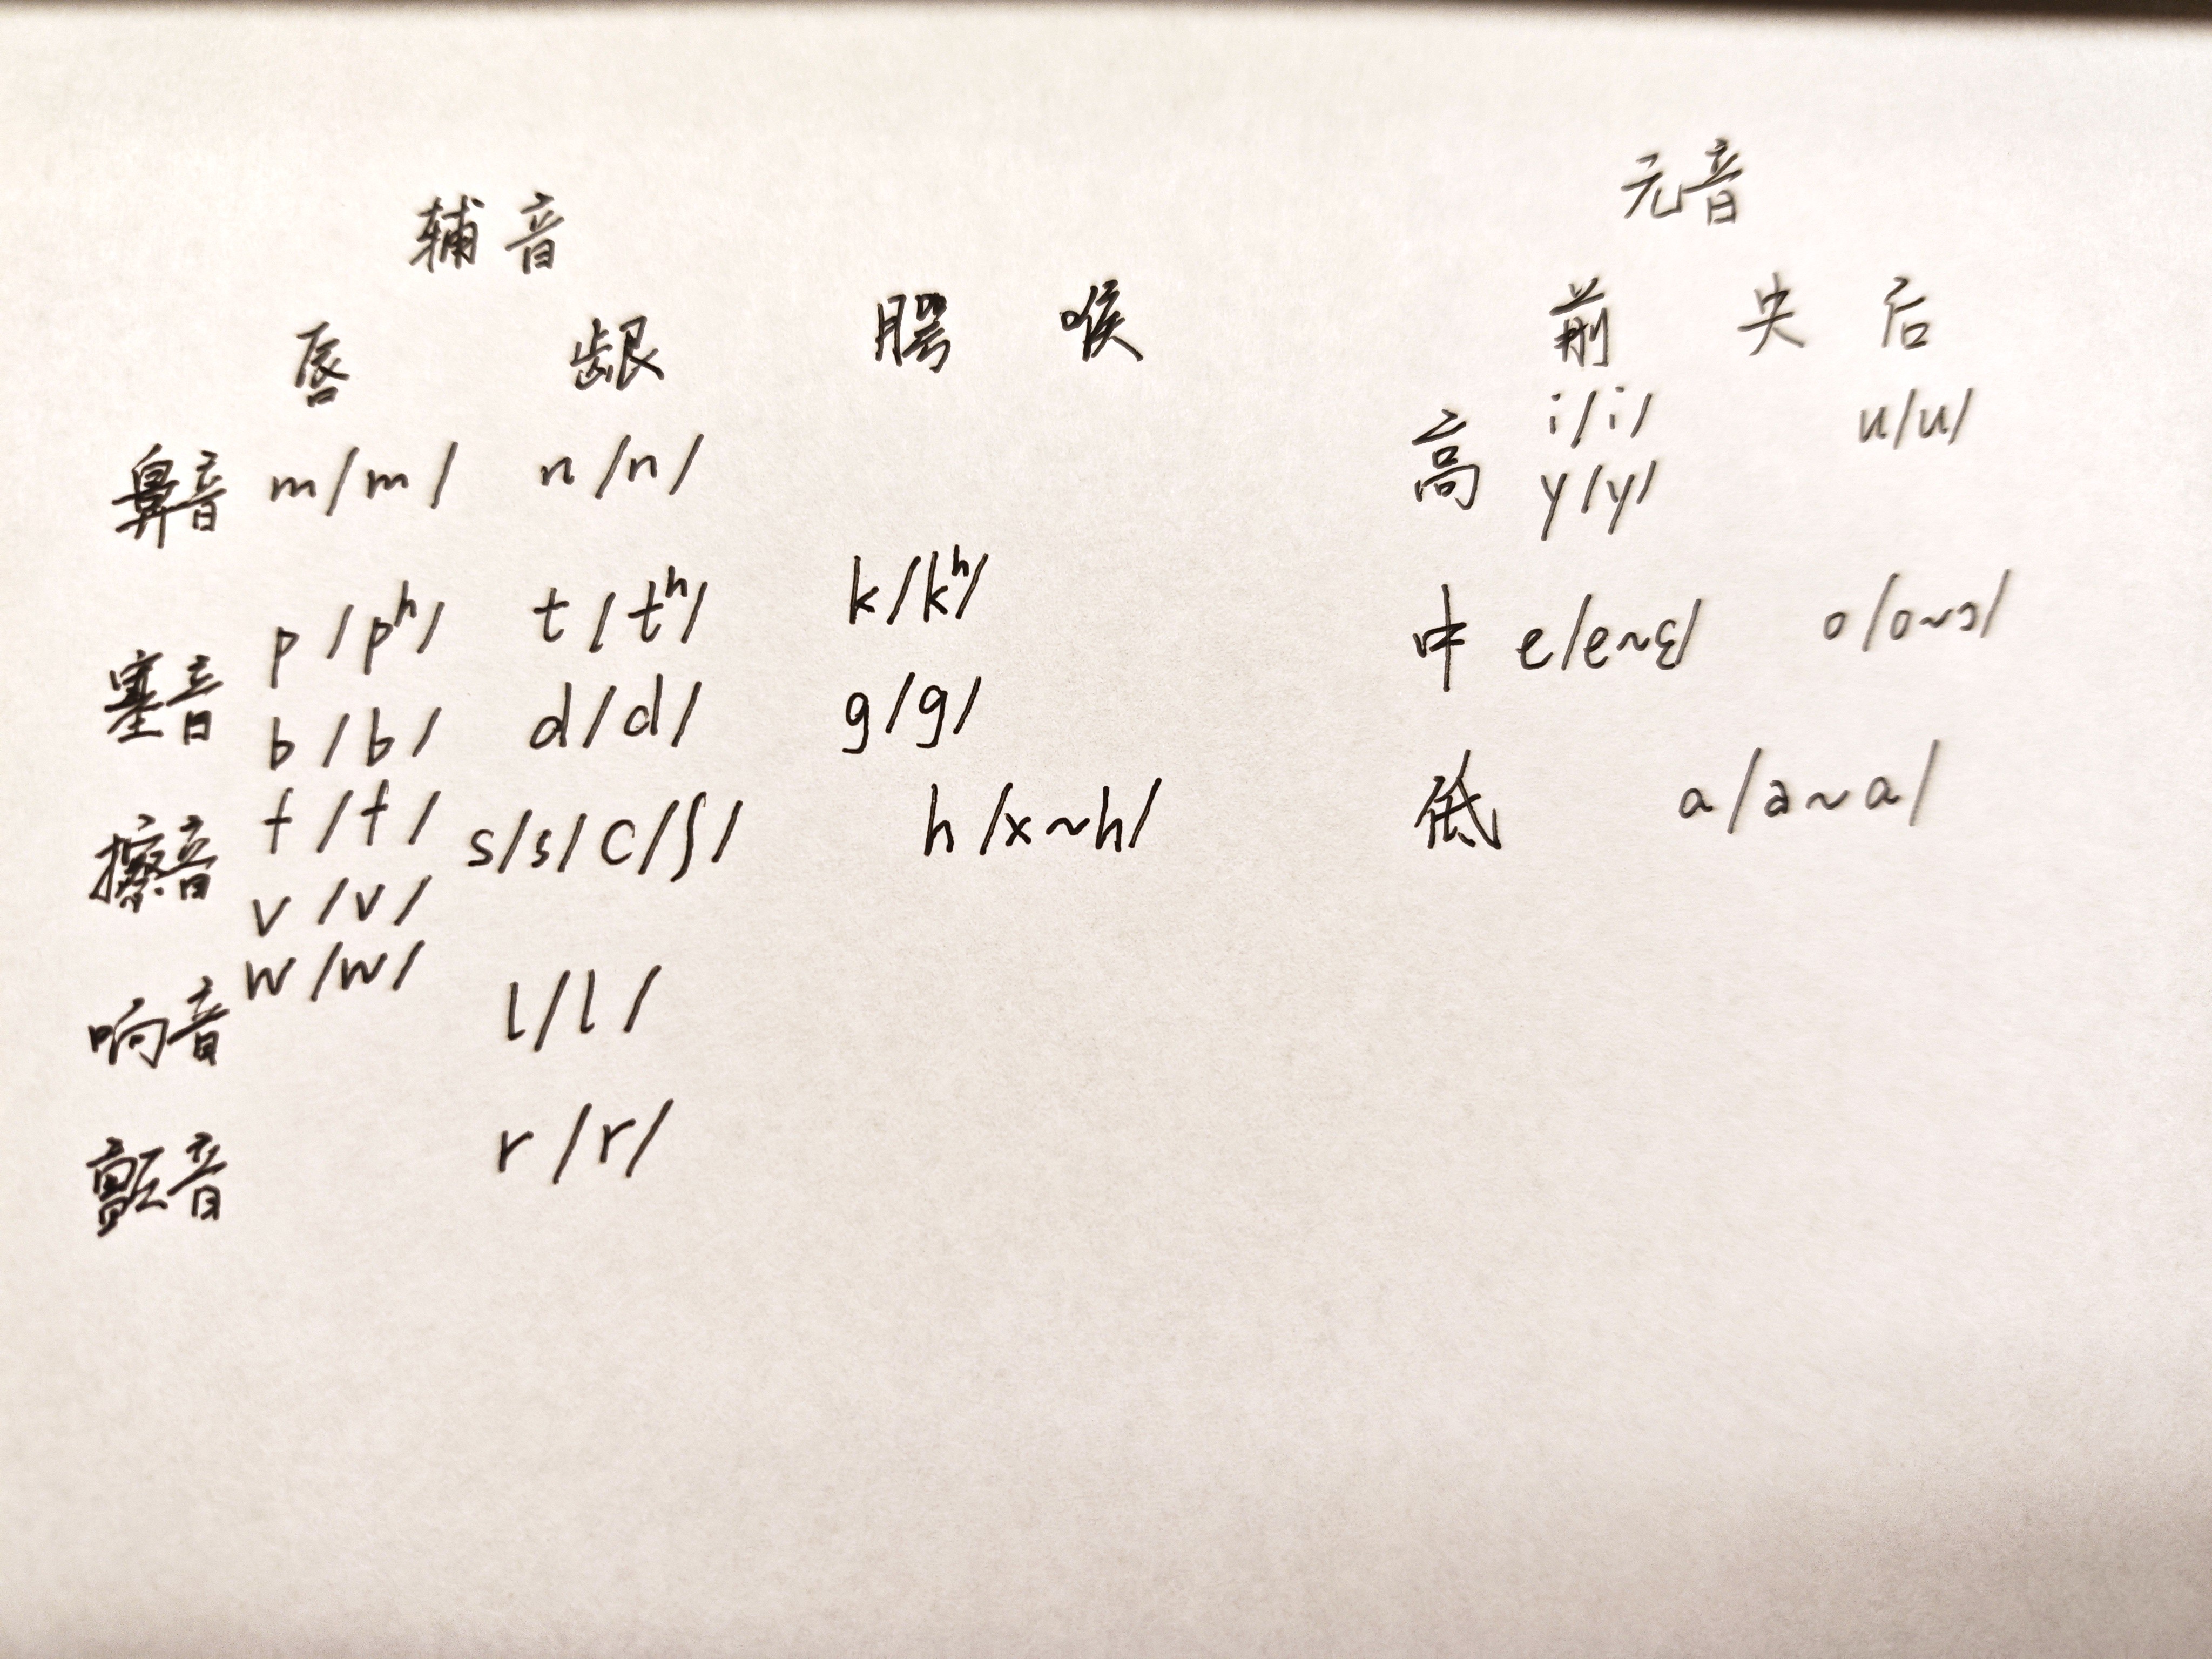 辅音
唇 龈 腭 喉
鼻音 m/m/ n/n/
塞音 p/pʰ/ t/tʰ/ k/kʰ/
b/b/ d/d/ g/g/
擦音 f/f/ s/s/ c/ʃ/ h/x~h/
v/v/
响音 w/w/ l/l/
颤音 r/r/
元音
前 央 后
高 i/i/ u/u/
y/y/
中 e/e~ɛ/ o/o~ɔ/
低 a/a~ɑ/